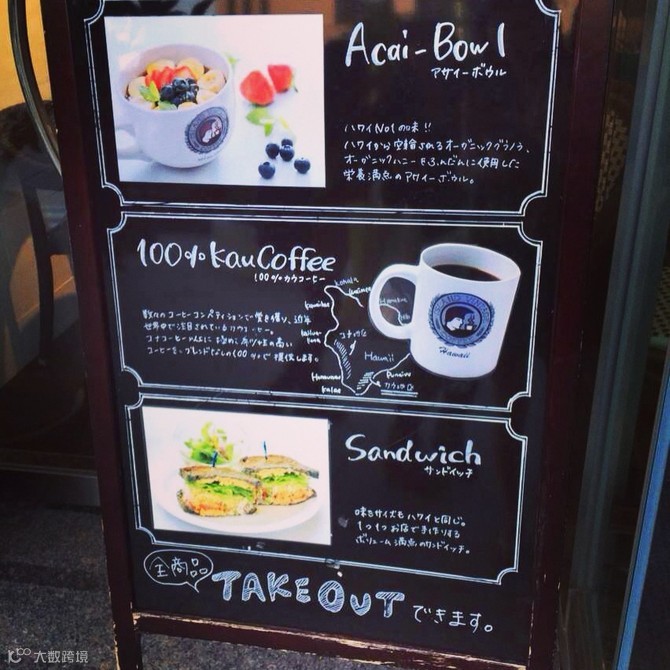 Acai-Bowl
アサイーボウル
ハワイNo1の味!!
ハワイから空輸されるオーガニックグラノラ、
オーガニックハニーをふんだんに使用した
栄養満点のアサイーボウル。
100%KauCoffee
100%カウコーヒー
数々のコーヒーコンペティションで賞を獲り、近年
世界中で注目されているカウコーヒー。
コナコーヒー
コーヒーをブレンドなしの100%で提供します。
Kohala
Waimea
Hamakua
コナ地区
Hawaii
Honaunau
Kalae
Punaluu
カウ地区
Hawaii
Sandwich
サンドイッチ
味もサイズもハワイと同じ。
1つ1つお店で手作りする
ボリューム満点のサンドイッチ。
全商品
TAKEOUT できます。
大数跨境